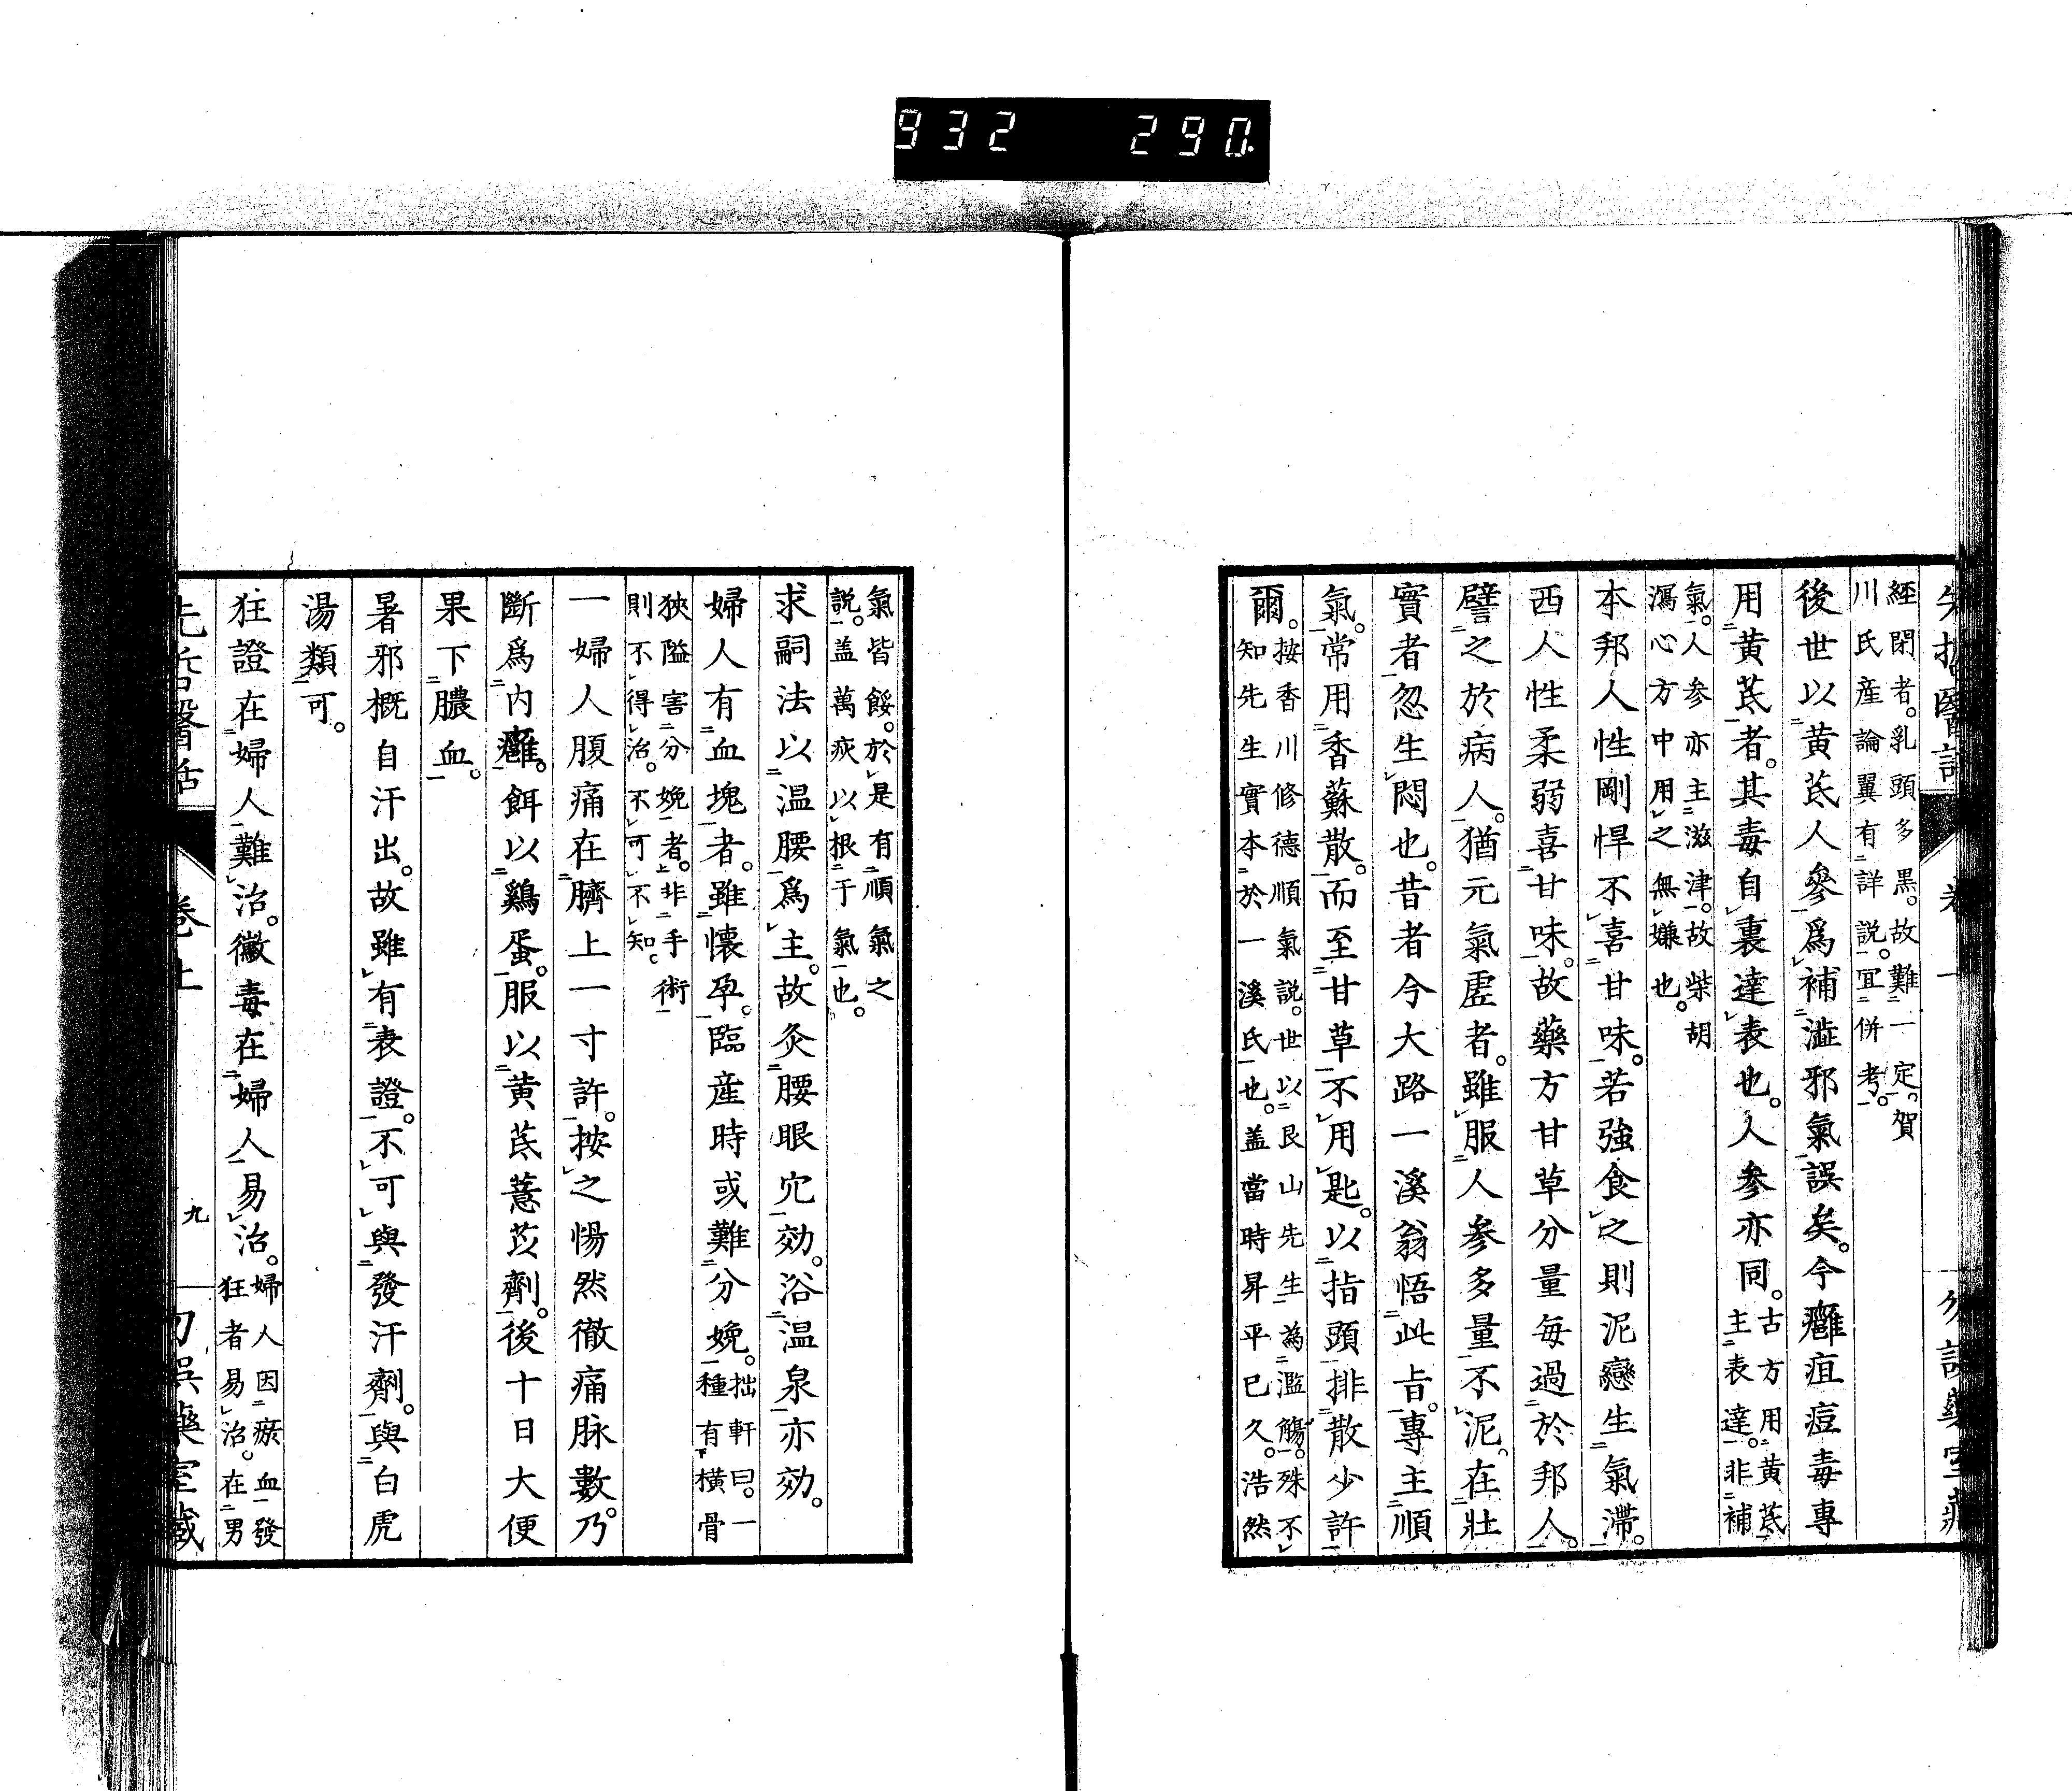 932 290
經閉者。乳頭多黑。故難一定。賀
川氏産論翼有詳説。宜併考。
後世以黄芪人參爲補澁邪氣誤矣。今癰疽痘毒專
用黄芪者。其毒自裏達表也。人參亦同。古方用黄芪
主表達。非補
氣。人参亦主滋津。故柴胡
瀉心方中用之無嫌也。
本邦人性剛悍不喜甘味。若強食之則泥戀生氣滯。
西人性柔弱喜甘味。故藥方甘草分量毎過於邦人。
譬之於病人。猶元氣虛者。雖服人參多量不泥。在壯
實者忽生悶也。昔者今大路一溪翁悟此旨。專主順
氣。常用香蘇散。而至甘草不用匙。以指頭排散少許
爾。按香川修德順氣説。世以艮山先生為濫觴。殊不
知先生實本於一溪氏也。盖當時昇平已久。浩然
氣皆餒。於是有順氣之
説。盖萬疾以根于氣也。
求嗣法以温腰爲主。故灸腰眼穴効。浴温泉亦効。
婦人有血塊者。雖懷孕。臨産時或難分娩。拙軒曰。一
種有橫骨
狹隘害分娩者。非手術
則不得治。不可不知。
一婦人腹痛在臍上一寸許。按之愓然徹痛脉數。乃
斷爲内癰。餌以鷄蛋。服以黄芪薏苡劑。後十日大便
果下膿血。
暑邪概自汗出。故雖有表證。不可與發汗劑。與白虎
湯類可。
狂證在婦人難治。黴毒在婦人易治。婦人因瘀血發
狂者易治。在男
先哲醫話 卷上 九 勿誤藥室藏